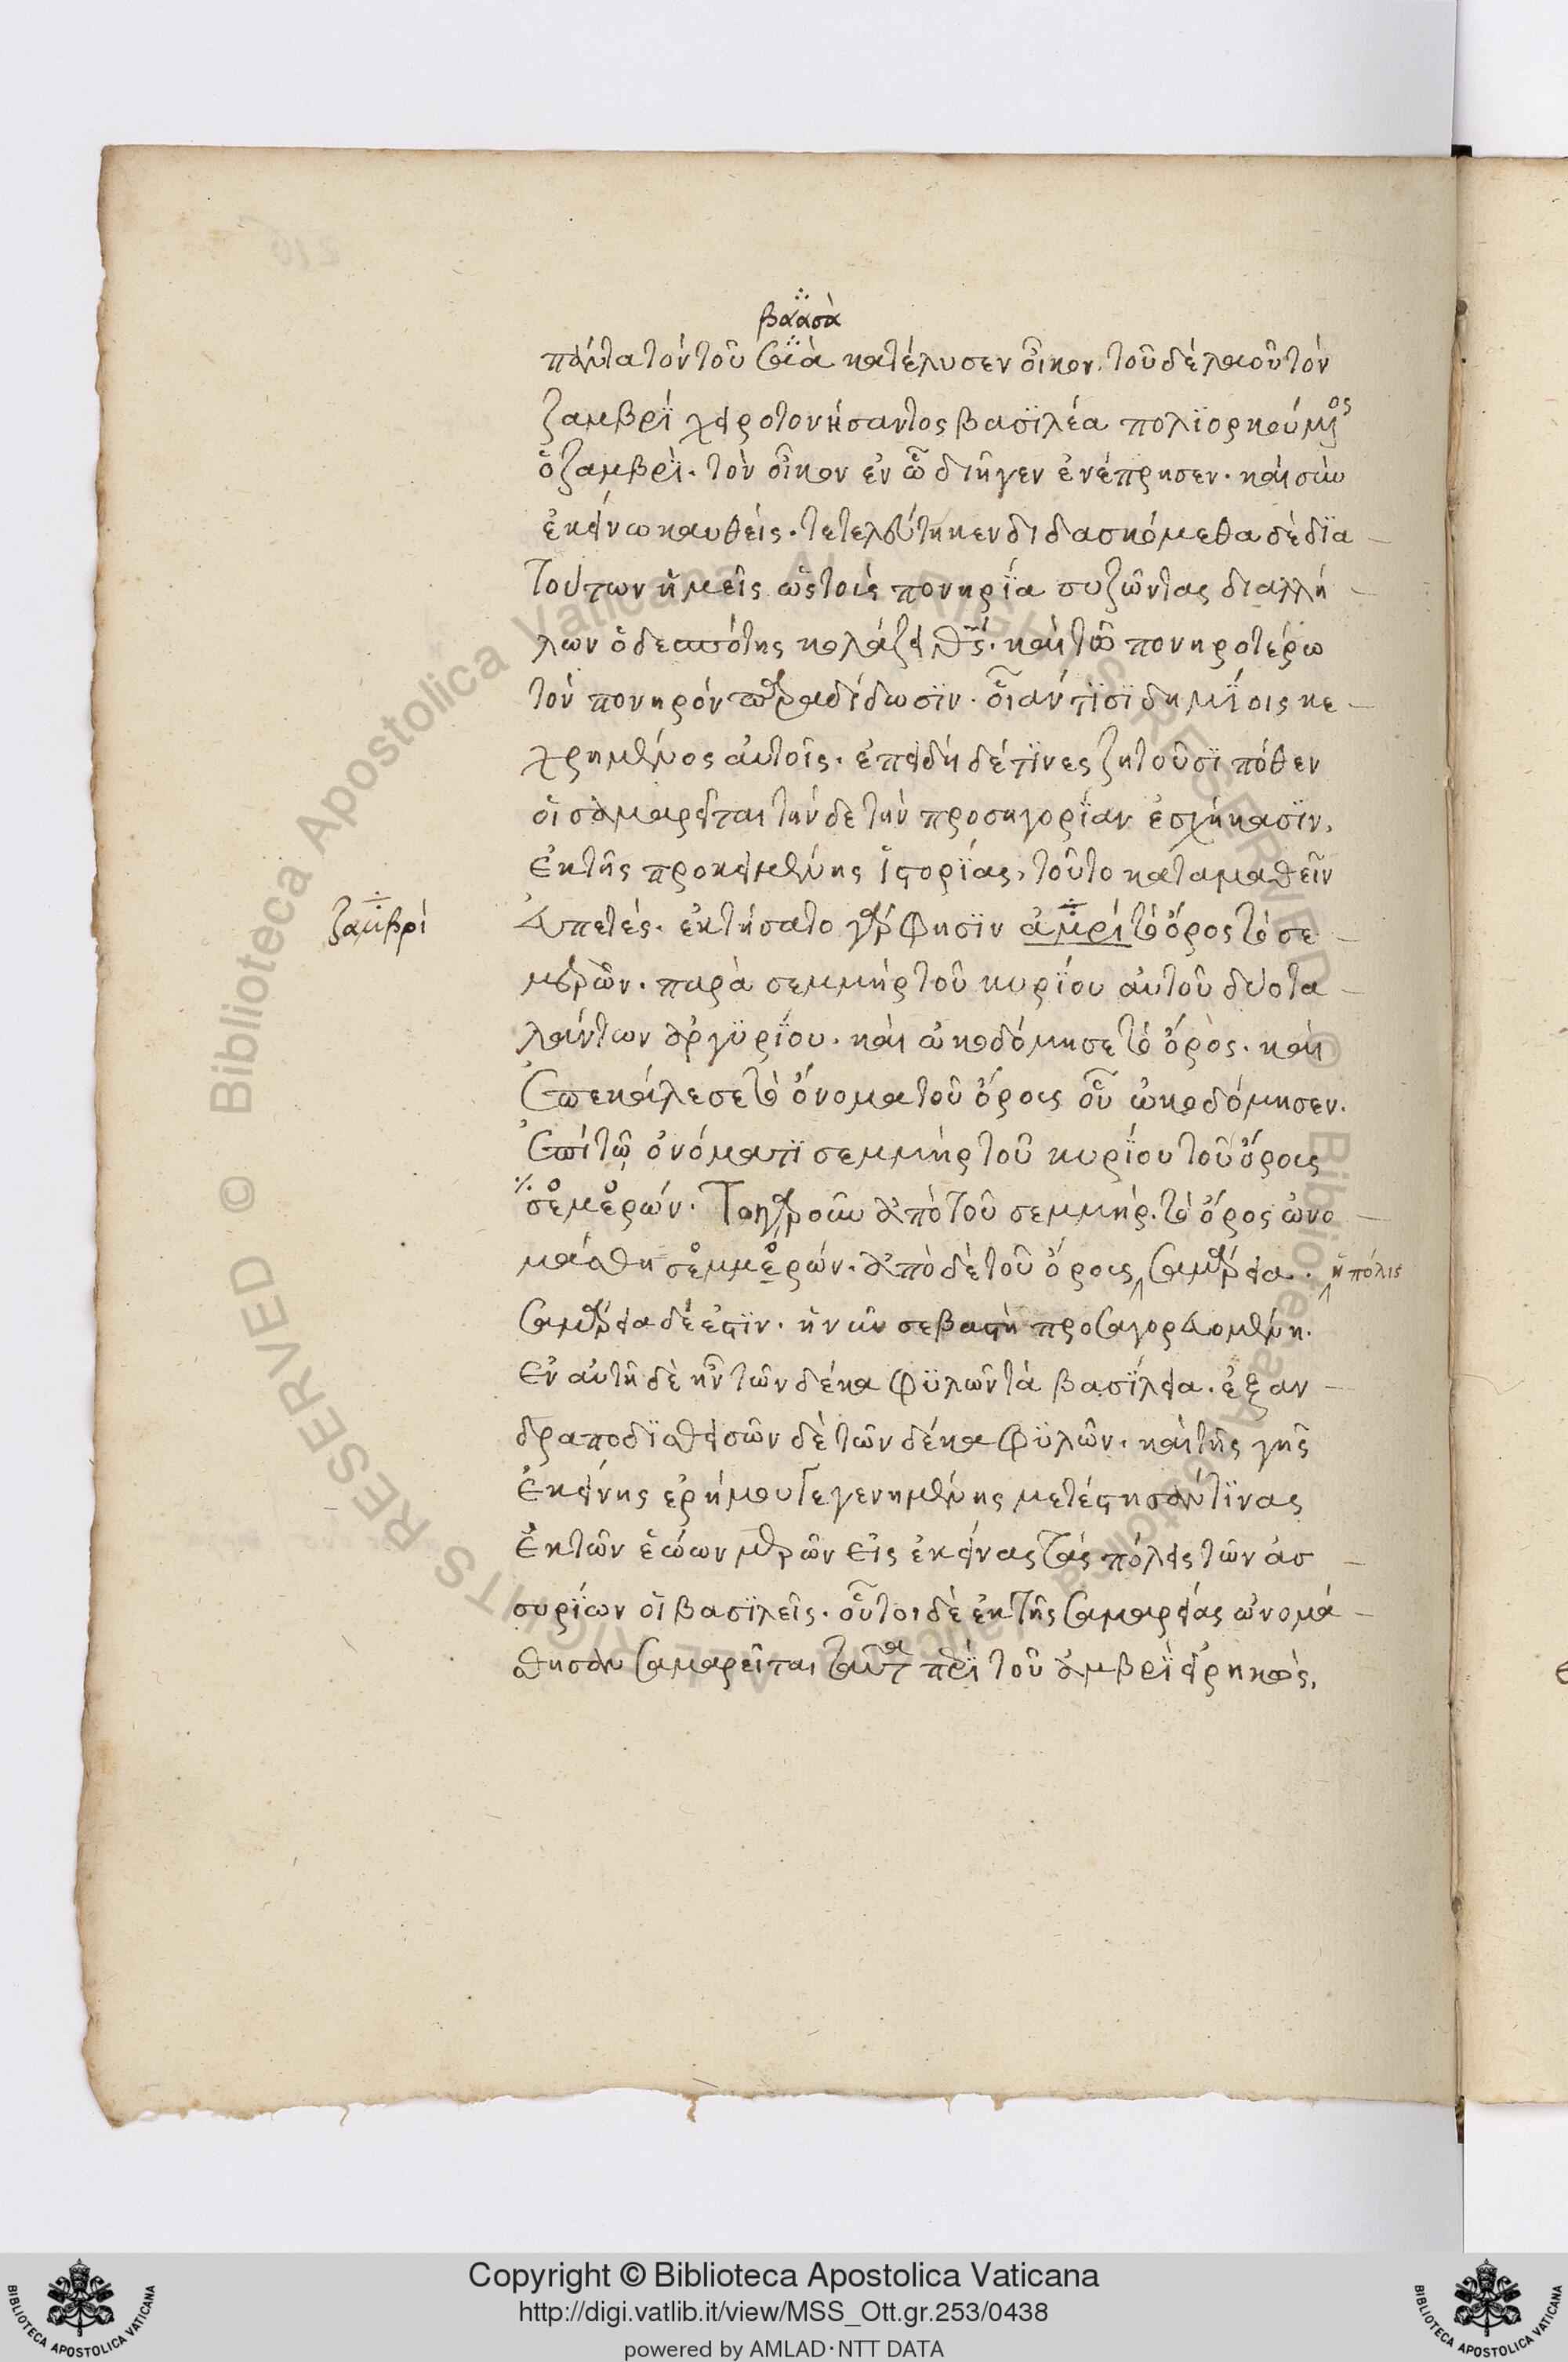 βαασὰ
πάντα τὸν τοῦ σαὰ κατέλυσεν οἶκον. τοῦ δὲ λαοῦ τὸν
ζαμβρῒ χειροτονήσαντος βασϊλέα πολϊορκούμενος
ὁ ζαμβρῒ. τὸν οἶκον ἐν ὧ διῆγεν ἐνέπρησεν. καὶ σὺν
ἐκείνω καυθεὶς. τετελεύτηκεν διδασκόμεθα δὲ δϊα
τούτων ἡμεῖς ὡς τοὺς πονηρΐα συζῶντας διαλλή
λων ὁ δεσπότης κολάζει θς. καὶ τῶ πονηροτέρω
τὸν πονηρὸν παραδίδωσϊν. οἷάν τϊσϊ δημΐοις κε
χρημένος αὐτοῖς. ἐπειδὴ δέ τϊνες ζητοῦσϊ πόθεν
οἱ σαμαρεῖται τήνδε τὴν προσηγορΐαν ἐσχήκασϊν,
ἐκ τῆς προκειμένης ἱστορΐας, τοῦτο καταμαθεῖν
ζαμβρὶ
εὐπετές. ἐκτήσατο γὰρ φησϊν ἀμρὶ τὸ ὄρος τὸ σε
μερὼν. παρὰ σεμμὴρ τοῦ κυρΐου αὐτοῦ δύο τα
λάντων ἀργϋρΐου. καὶ ὠκοδόμησε τὸ ὄρος. καὶ
ἐπεκάλεσε τὸ ὄνομα τοῦ ὄρους οὗ ὠκοδόμησεν.
ἐπὶ τῷ ὀνόματϊ σεμμὴρ τοῦ κυρΐου τοῦ ὄρους
σεμερών. τοιγαροῦν ἀπὸ τοῦ σεμμὴρ. τὸ ὄρος ὠνο
μάσθη σεμμερών. ἀπὸ δὲ τοῦ ὄρους σαμάρεια. ἡ πόλις
σαμάρεια δέ ἐστϊν. ἡ νῦν σεβαστὴ προσαγορευομένη.
ἐν αὐτῆ δὲ ἦν τῶν δέκα φϋλῶν τὰ βασΐλεια. ἐξαν
δραποδϊσθεισῶν δὲ τῶν δέκα φϋλῶν. καὶ τῆς γῆς
ἐκείνης ἐρήμου γεγενημένης μετέστησάν τϊνας
ἐκ τῶν ἑώων μερῶν εἰς ἐκείνας τὰς πόλεις τῶν ἀσ
συρΐων οἱ βασϊλεῖς. οὗτοι δὲ ἐκ τῆς σαμαρείας ὠνομά
σθησαν σαμαρεῖται ταῦτα περὶ τοῦ ἀμβρῒ εἰρηκὼς,
Copyright © Biblioteca Apostolica Vaticana
http://digi.vatlib.it/view/MSS_Ott.gr.253/0438
powered by AMLAD·NTT DATA